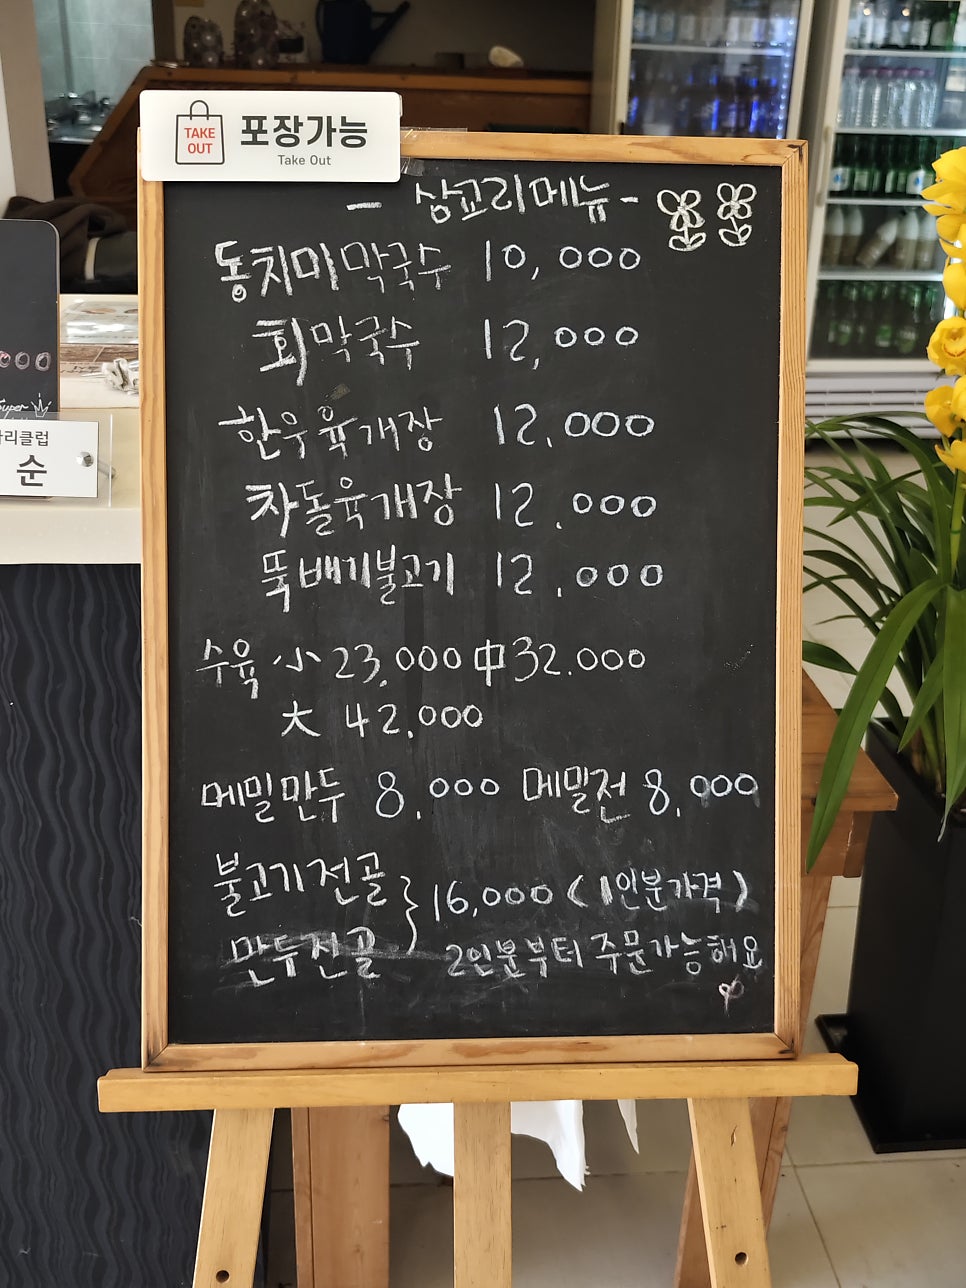 TAKE OUT 포장가능
Take Out
- 삼교리메뉴 -
동치미막국수 10,000
회막국수 12,000
한우육개장 12.000
차돌육개장 12.000
뚝배기불고기 12.000
수육 小 23.000 中 32.000
大 42.000
메밀만두 8.000 메밀전 8.000
불고기전골
만두전골
} 16,000 (1인분가격)
2인분부터 주문가능해요
리클럽
순